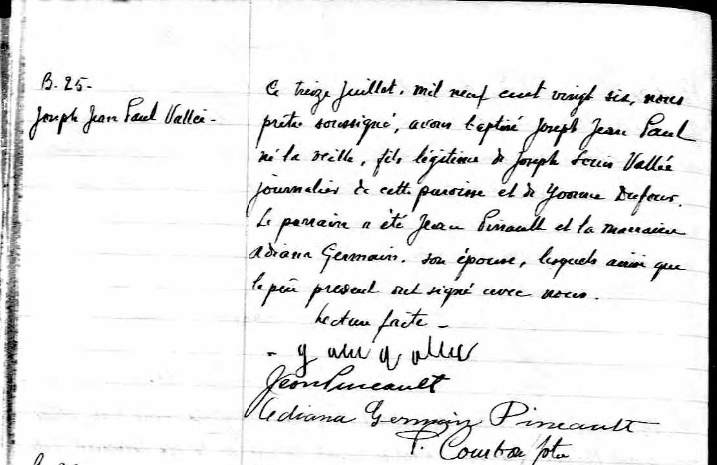 B. 25-
Joseph Jean Paul Vallée -
Ce treize juillet, mil neuf cent vingt six, nous
prêtre soussigné, avons baptisé Joseph Jean Paul
né la veille, fils légitime de Joseph Louis Vallée
journalier de cette paroisse et de Yvonne Dufour.
Le parrain a été Jean Pineault et la marraine
Adiana Germain, son épouse, lesquels ainsi que
le père présent ont signé avec nous.
Lecture faite -
Jean Pineault
Lediana Germain Pineault
P.